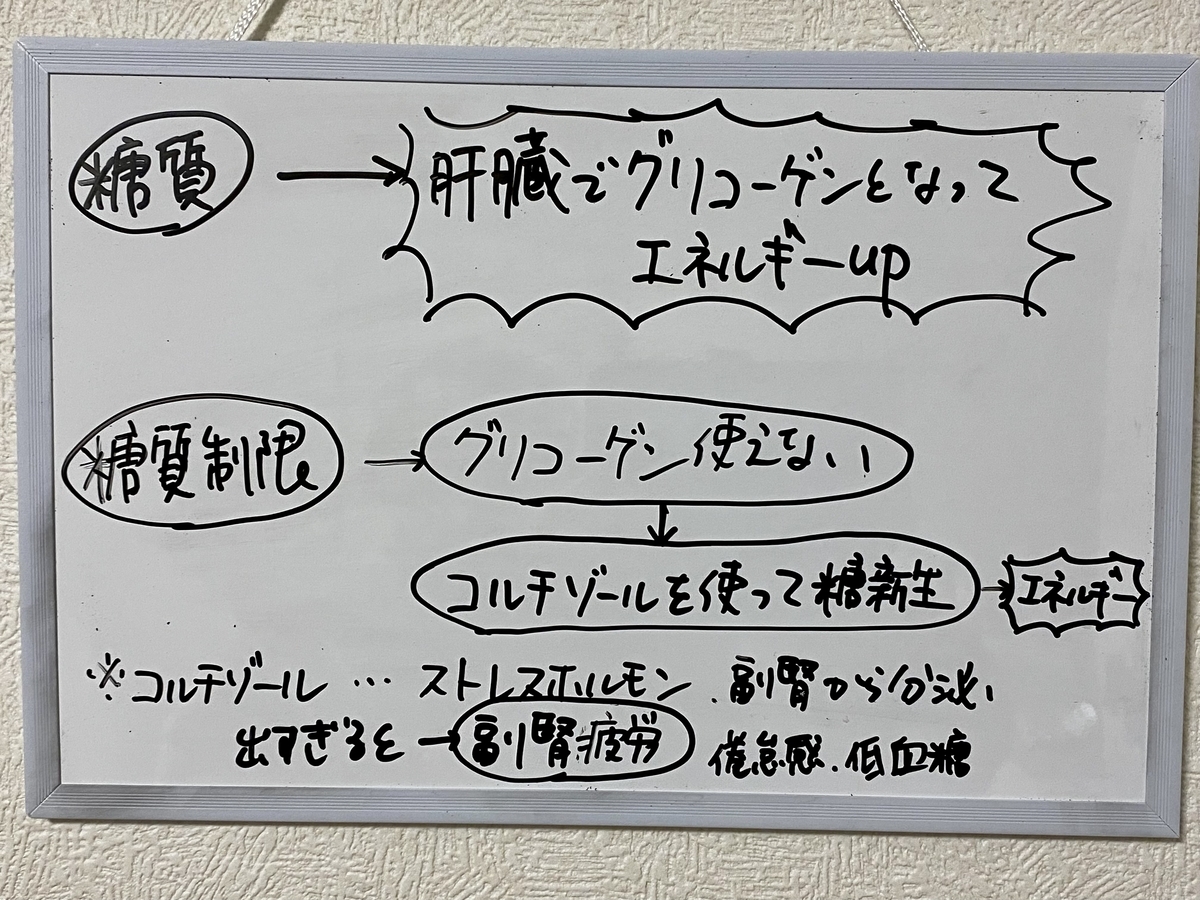 糖質 → 肝臓でグリコーゲンとなって
エネルギーup
糖質制限 → グリコーゲン使えない
↓
コルチゾールを使って糖新生 → エネルギー
※コルチゾール … ストレスホルモン 副腎から分泌
出すぎると → 副腎疲労 倦怠感、低血糖